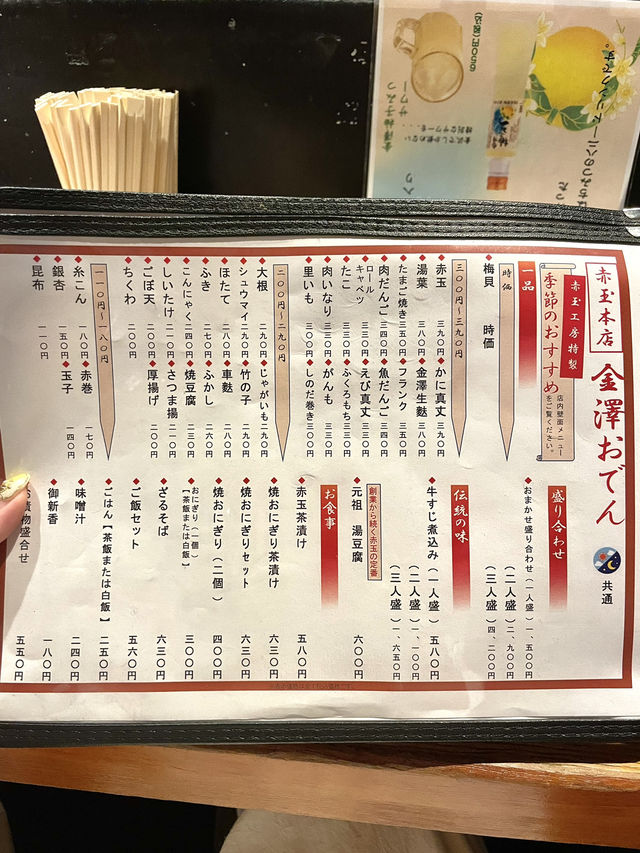 赤玉本店 金澤おでん 共通
赤玉工房特製
季節のおすすめ
店内壁面メニュー
をご覧ください。
一品
時価
◆梅貝 時価
三〇〇円〜三九〇円
◆赤玉 三九〇円 ◆かに真丈 三九〇円
◆湯葉 三八〇円 ◆金澤生麩 三八〇円
◆たまご焼き 三五〇円 ◆フランク 三五〇円
◆肉だんご 三四〇円 ◆魚だんご 三四〇円
◆ロールキャベツ 三三〇円 ◆えび真丈 三三〇円
◆たこ 三三〇円 ◆ふくろもち 三三〇円
◆肉いなり 三三〇円 ◆がんも 三〇〇円
◆里いも 三〇〇円 ◆しのだ巻き 三〇〇円
二〇〇円〜二九〇円
◆大根 二九〇円 ◆じゃがいも 二九〇円
◆シュウマイ 二九〇円 ◆竹の子 二九〇円
◆ほたて 二八〇円 ◆車麩 二八〇円
◆ふき 二七〇円 ◆ふかし 二六〇円
◆こんにゃく 二四〇円 ◆焼豆腐 二三〇円
◆しいたけ 二一〇円 ◆さつま揚 二一〇円
◆ごぼ天 二〇〇円 ◆厚揚げ 二〇〇円
◆ちくわ 二〇〇円
一一〇円〜一八〇円
◆糸こん 一八〇円 ◆赤巻 一七〇円
◆銀杏 一五〇円 ◆玉子 一四〇円
◆昆布 一一〇円
盛り合わせ
◆おまかせ盛り合わせ(一人盛) 一、五〇〇円
(二人盛) 二、九〇〇円
(三人盛) 四、二〇〇円
伝統の味
◆牛すじ煮込み(一人盛) 五八〇円
(二人盛) 一、一〇〇円
(三人盛) 一、六五〇円
創業から続く赤玉の定番
◆元祖 湯豆腐 六〇〇円
お食事
◆赤玉茶漬け 五八〇円
◆焼おにぎり茶漬け 六三〇円
◆焼おにぎりセット 六三〇円
◆焼おにぎり(二個) 四〇〇円
◆おにぎり(一個) 三〇〇円
【茶飯または白飯】
◆ざるそば 六三〇円
◆ご飯セット 五六〇円
◆ごはん【茶飯または白飯】 二五〇円
◆味噌汁 二四〇円
◆御新香 一八〇円
漬物盛合せ 五五〇円
金澤柚子みつサワー